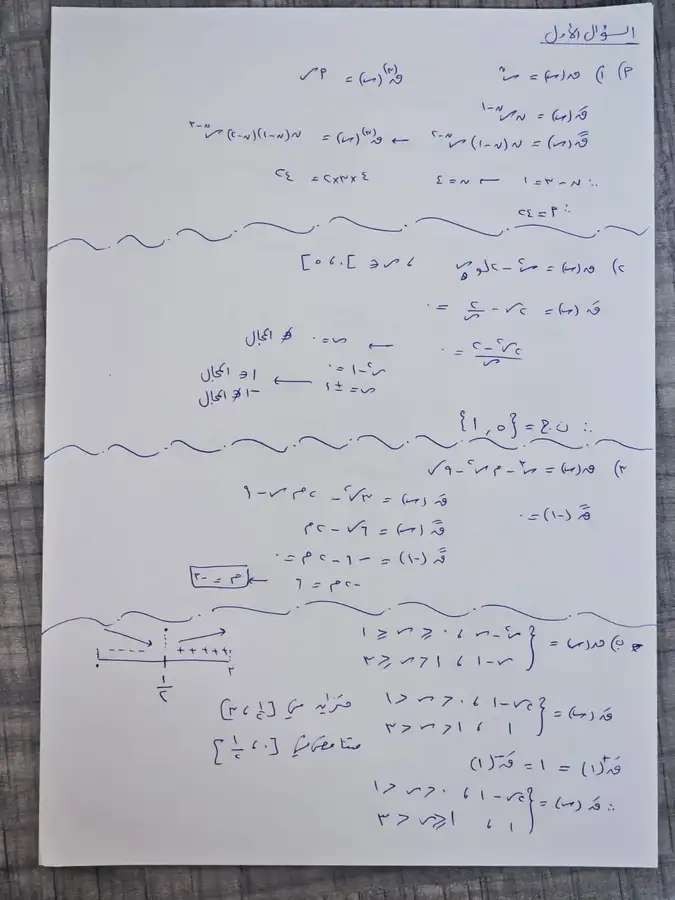 السؤال الأول
أ) ١) ق(س) = سⁿ ق⁽³⁾(س) = أ س
قَ(س) = ن سⁿ⁻¹
قً(س) = ن(ن-١) سⁿ⁻² ← ق⁽³⁾(س) = ن(ن-١)(ن-٢) سⁿ⁻³
∴ ن - ٣ = ١ ← ن = ٤ ٤×٣×٢ = ٢٤
∴ أ = ٢٤
٢) ق(س) = س² - ٢لوهـس ، س ∈ ]٠، ٥]
قَ(س) = ٢س - ٢/س = ٠
(٢س² - ٢)/س = ٠ ← س = ٠ ∉ المجال
س² - ١ = ٠
س = ±١ ← ١ ∈ المجال
-١ ∉ المجال
∴ ن.ح = {٥, ١}
٣) ق(س) = س³ - م س² - ٩س
قً(-١) = ٠
قَ(س) = ٣س² - ٢م س - ٩
قً(س) = ٦س - ٢م
قً(-١) = -٦ - ٢م = ٠
-٢م = ٦ ← م = -٣
ب) ق(س) = { س² - س ، ٠ ≤ س ≤ ١
س - ١ ، ١ < س ≤ ٣
٠ - - - - ١/٢ + + + + + ٣
قَ(س) = { ٢س - ١ ، ٠ < س < ١
١ ، ١ < س < ٣
متزايد في [١/٢، ٣]
متناقص في [٠، ١/٢]
قَ⁺(١) = ١ = قَ⁻(١)
∴ قَ(س) = { ٢س - ١ ، ٠ < س < ١
١ ، ١ ≤ س < ٣